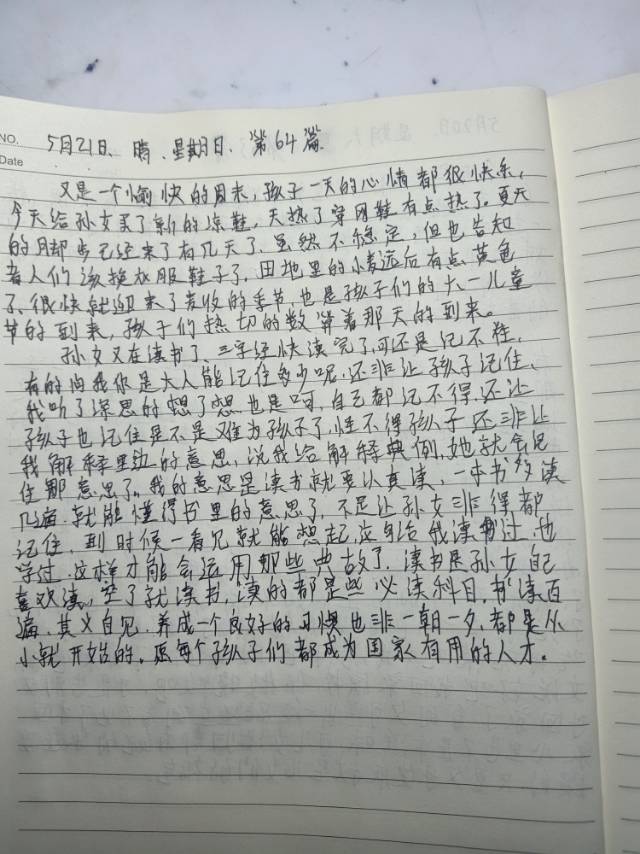 NO.
Date
5月21日、晴、星期日、第64篇
又是一个愉快的周末,孩子一天的心情都很快乐,
今天给孙女买了新的凉鞋,天热了穿网鞋有点热了。夏天
的脚步已经来了有几天了、虽然不稳定,但也告知
着人们该换衣服鞋子了,田地里的小麦远后有点黄色
了、很快就迎来了麦收的季节,也是孩子们的六一儿童
节的到来,孩子们热切的数算着那天的到来。
孙女又在读书了、三字经快读完了,可还是记不住,
有的问我你是大人能记住多少呢,还非让孩子记住、
我听了深思的想了想也是呵,自己都记不得,还让
孩子也记住是不是难为孩子了,怪不得孩子还非让
我解释里边的意思,说我给解释典例,她就会记
住那意思了。我的意思是读书就要认真读,一本书多读
几遍,就能懂得书里的意思了,不是让孙女非得都
记住,到时候一看见就能想起,这句话我读过,也
学过,这样才能会运用那些典故了,读书是孙女自己
喜欢读,空了就读书,读的都是些必读科目,书读百
遍,其义自见,养成一个良好的习惯也非一朝一夕,都是从
小就开始的,愿每个孩子们都成为国家有用的人才。